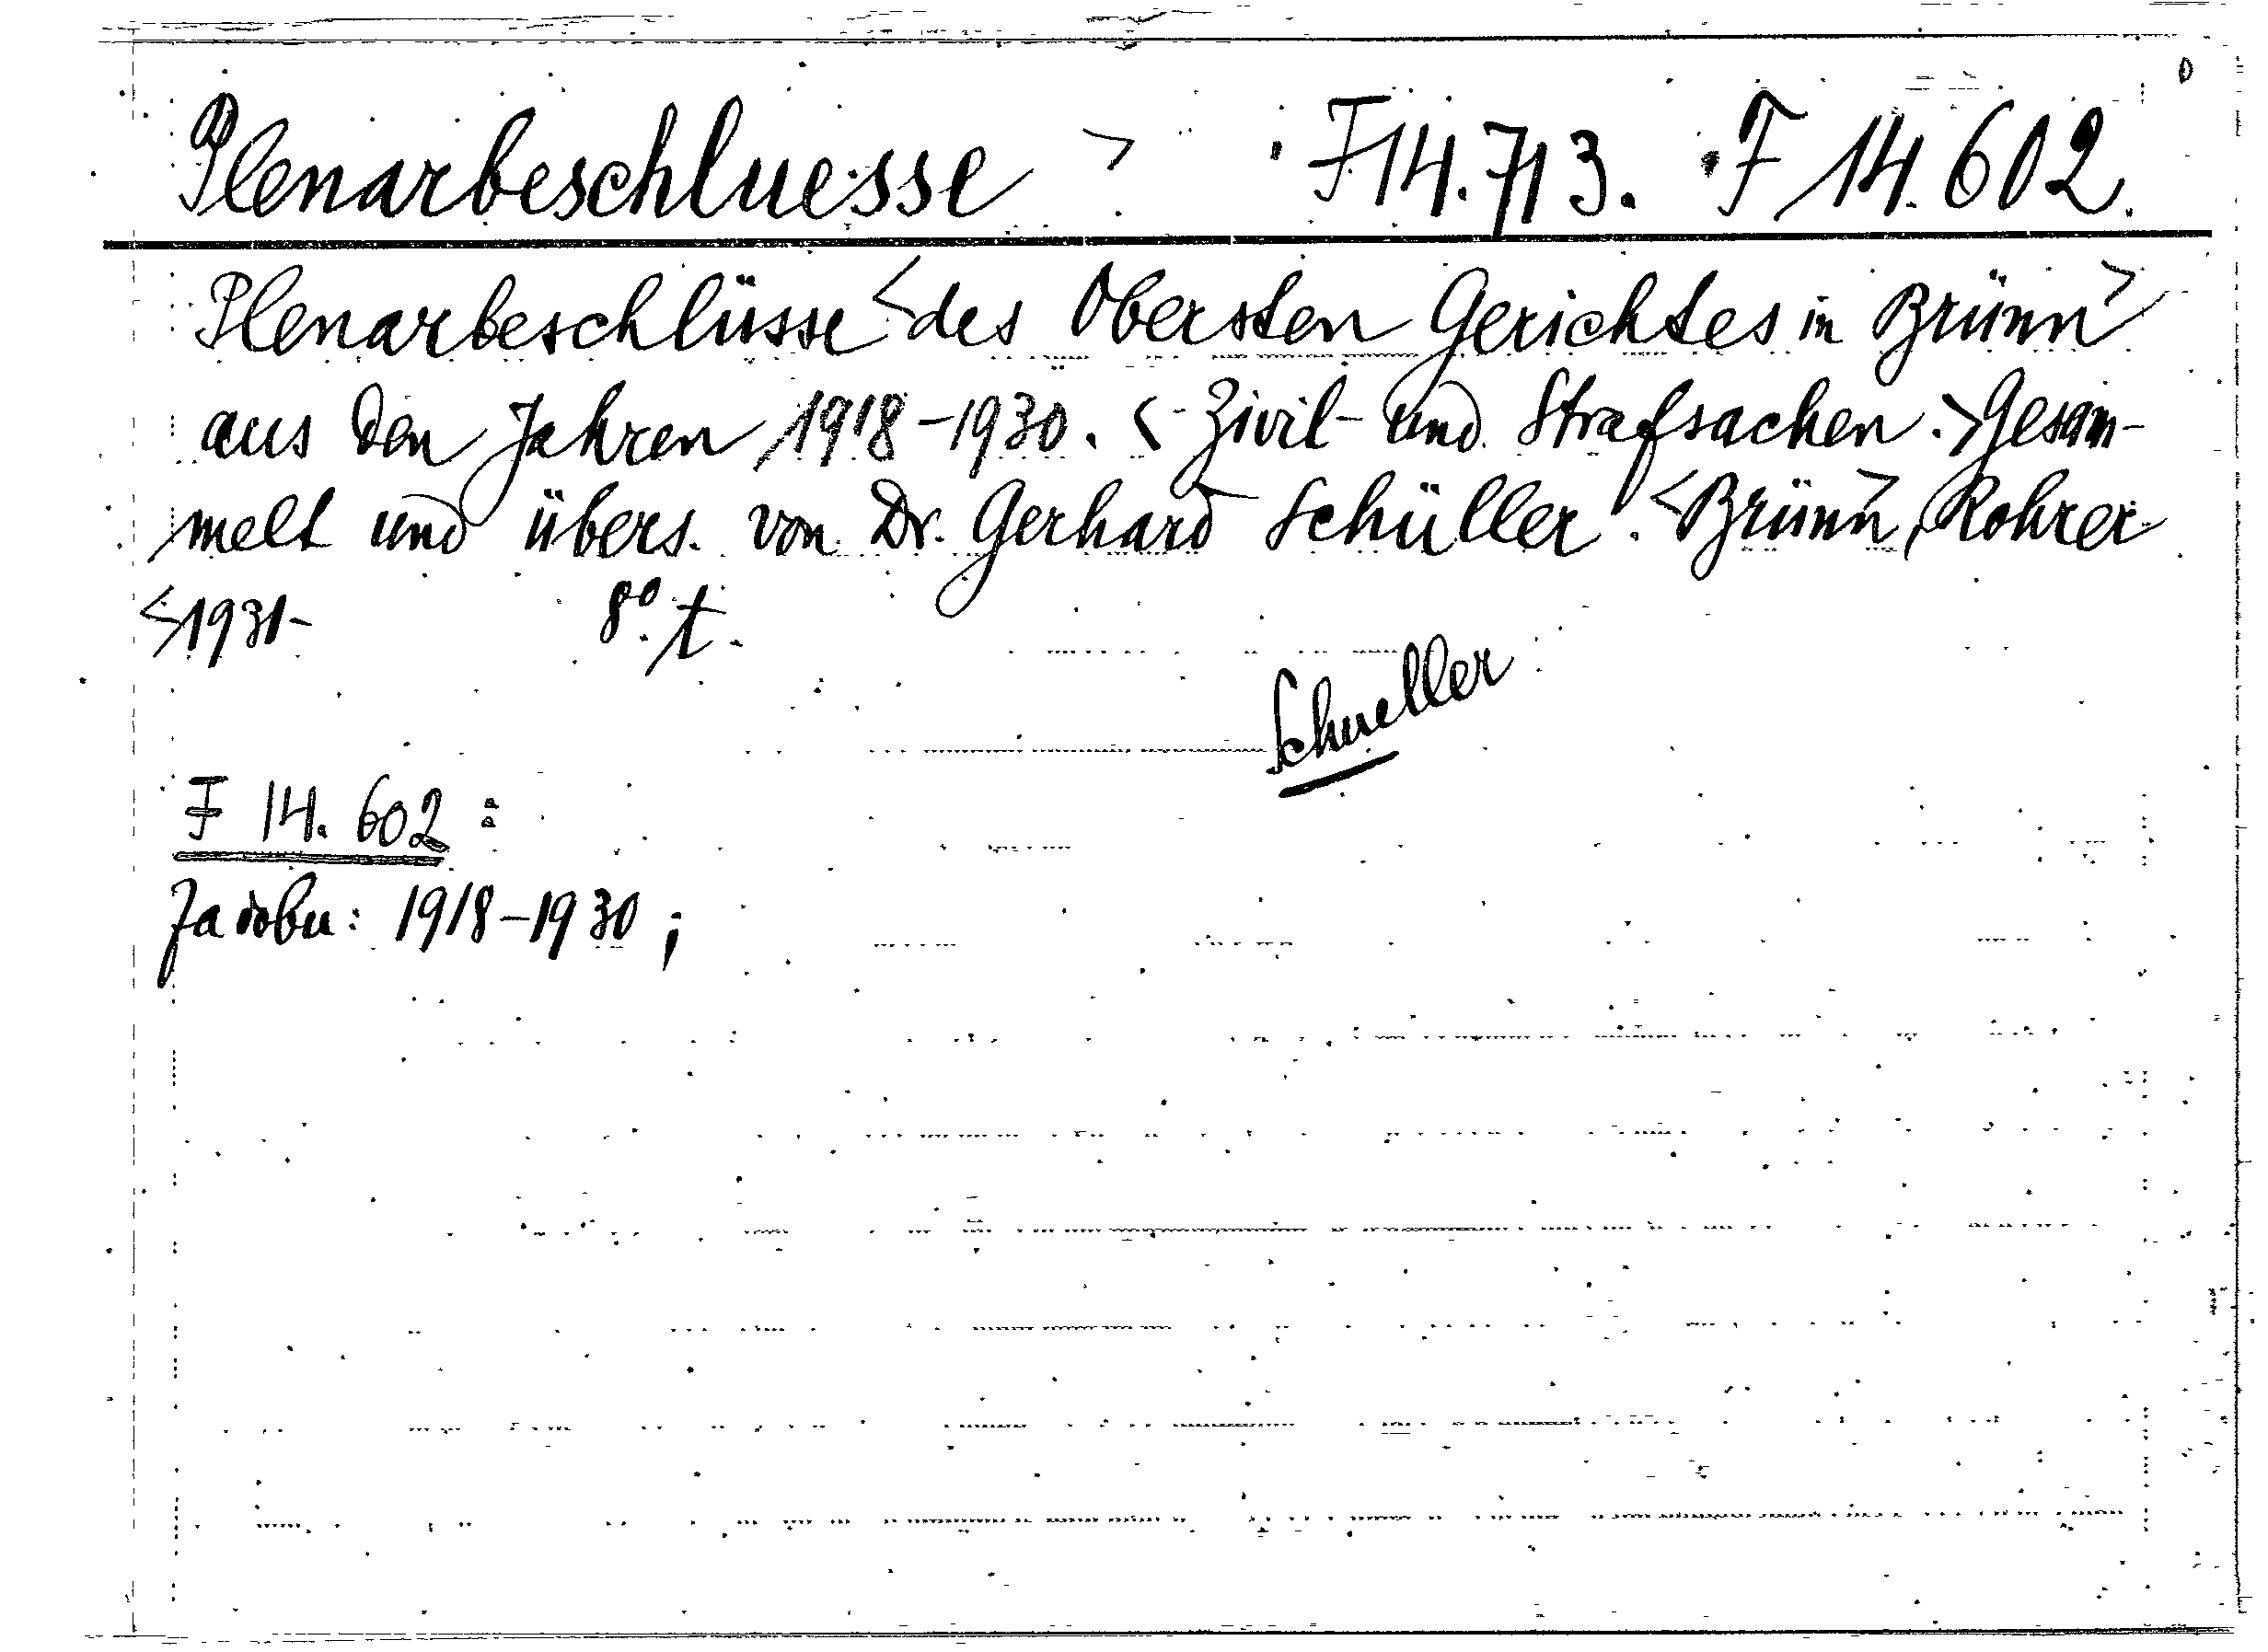 Plenarbeschluesse > F 14.713. F 14.602.
Plenarbeschlüsse <des Obersten Gerichtes in Brünn>
aus den Jahren 1918-1930. <-Zivil- und Strafsachen.> Gesam-
melt und übers. von Dr. Gerhard Schüller. <Brünn>, Rohrer
<1931- 8° t.
Schueller
F 14.602 :
Za dobu: 1918-1930 ;